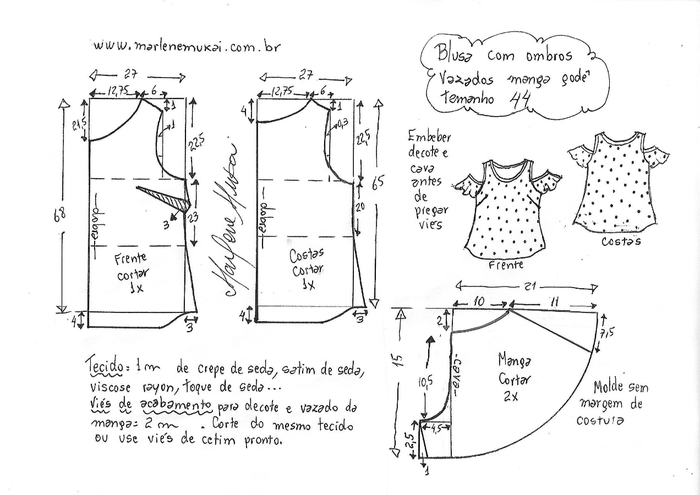 www.marlenemukai.com.br
Blusa com ombros
vazados manga godê
tamanho 44
27
12,75
6
1
1
22,5
68
23
3
dobra
Frente
cortar
1x
4
3
Marlene Mukai
27
12,75
6
4
0,3
22,5
65
20
dobra
Costas
Cortar
1x
4
3
Embeber
decote e
cava
antes
de
pregar
viés
Frente
Costas
21
10
11
2
7,5
15
cava
10,5
Manga
Cortar
2x
4,5
2,5
1
Molde sem
margem de
costura
Tecido: 1m de crepe de seda, satim de seda,
viscose rayon, toque de seda...
Viés de acabamento para decote e vazado da
manga: 2m . Corte do mesmo tecido
ou use viés de cetim pronto.